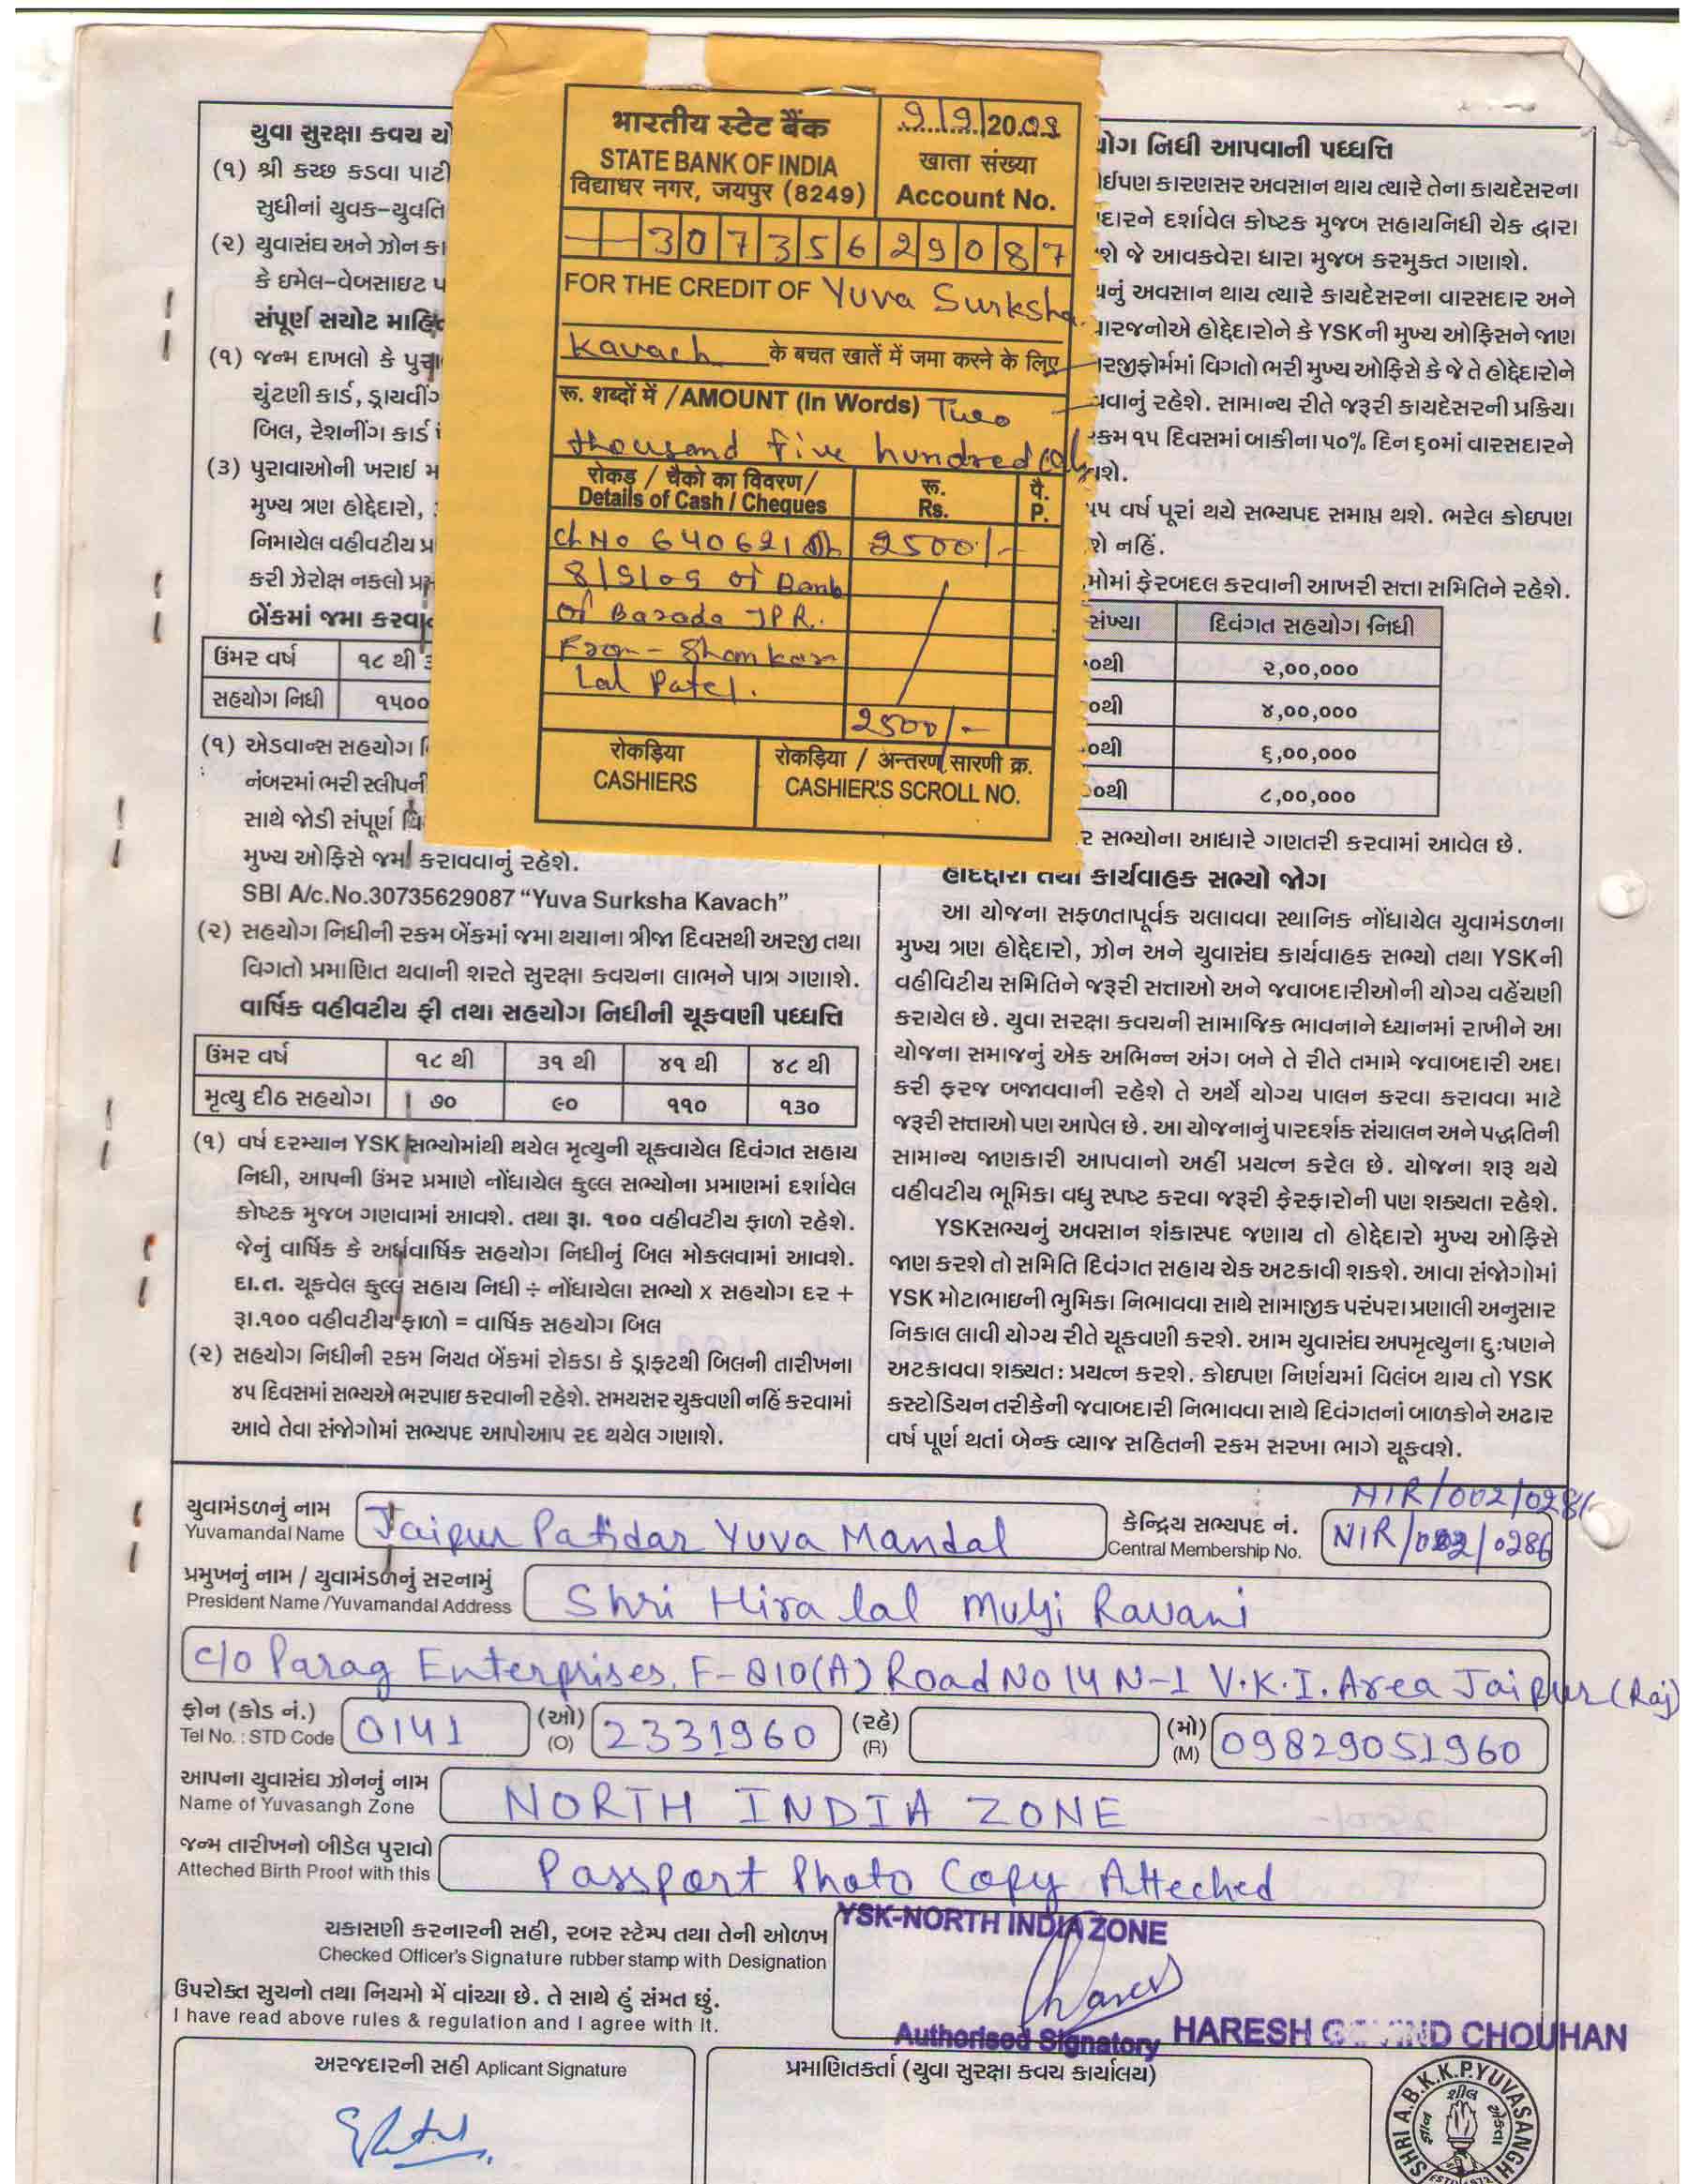 યુવા સુરક્ષા કવચ યો
(૧) શ્રી કચ્છ કડવા પાટી
સુધીનાં યુવક-યુવતિ
(૨) યુવાસંઘ અને ઝોન કા
કે ઇમેલ-વેબસાઇટ પ
સંપૂર્ણ સચોટ માહિ
(૧) જન્મ દાખલો કે પુરા
ચુંટણી કાર્ડ, ડ્રાયવીંગ
બિલ, રેશનીંગ કાર્ડ
(૩) પુરાવાઓની ખરાઈ મ
મુખ્ય ત્રણ હોદ્દેદારો,
નિમાયેલ વહીવટીય પ્ર
કરી ઝેરોક્ષ નકલો પ્ર
બેંકમાં જમા કરવા
ઉંમર વર્ષ ૧૮ થી ૩
સહયોગ નિધી ૧૫૦૦
(૧) એડવાન્સ સહયોગ નિ
નંબરમાં ભરી સ્લીપની
સાથે જોડી સંપૂર્ણ વિ
મુખ્ય ઓફિસે જમા કરાવવાનું રહેશે.
SBI A/c.No.30735629087 “Yuva Surksha Kavach”
(૨) સહયોગ નિધીની રકમ બેંકમાં જમા થયાના ત્રીજા દિવસથી અરજી તથા
વિગતો પ્રમાણિત થવાની શરતે સુરક્ષા કવચના લાભને પાત્ર ગણાશે.
વાર્ષિક વહીવટીય ફી તથા સહયોગ નિધીની ચૂકવણી પધ્ધતિ
ઉંમર વર્ષ ૧૮ થી ૩૧ થી ૪૧ થી ૪૮ થી
મૃત્યુ દીઠ સહયોગ ૭૦ ૯૦ ૧૧૦ ૧૩૦
(૧) વર્ષ દરમ્યાન YSK સભ્યોમાંથી થયેલ મૃત્યુની ચૂકવાયેલ દિવંગત સહાય
નિધી, આપની ઉંમર પ્રમાણે નોંધાયેલ કુલ્લ સભ્યોના પ્રમાણમાં દર્શાવેલ
કોષ્ટક મુજબ ગણવામાં આવશે. તથા રૂા. ૧૦૦ વહીવટીય ફાળો રહેશે.
જેનું વાર્ષિક કે અર્ધવાર્ષિક સહયોગ નિધીનું બિલ મોકલવામાં આવશે.
દા.ત. ચૂકવેલ કુલ્લ સહાય નિધી ÷ નોંધાયેલા સભ્યો x સહયોગ દર +
રૂા.૧૦૦ વહીવટીય ફાળો = વાર્ષિક સહયોગ બિલ
(૨) સહયોગ નિધીની રકમ નિયત બેંકમાં રોકડા કે ડ્રાફ્ટથી બિલની તારીખના
૪૫ દિવસમાં સભ્યએ ભરપાઇ કરવાની રહેશે. સમયસર ચુકવણી નહિં કરવામાં
આવે તેવા સંજોગોમાં સભ્યપદ આપોઆપ રદ થયેલ ગણાશે.
भारतीय स्टेट बैंक
STATE BANK OF INDIA
विद्याधर नगर, जयपुर (8249)
9/9/2009
खाता संख्या
Account No.
30735629087
FOR THE CREDIT OF Yuva Surksha
Kavach के बचत खातें में जमा करने के लिए
रू. शब्दों में / AMOUNT (In Words) Two
thousand five hundred only
रोकड़ / चैको का विवरण / रू. पै.
Details of Cash / Cheques Rs. P.
ch No 640621 Dt 2500/-
8/9/09 of Bank
of Baroda JPR.
From - Shankar
Lal Patel.
2500/-
रोकड़िया
CASHIERS
रोकड़िया / अन्तरण सारणी क्र.
CASHIER'S SCROLL NO.
યોગ નિધી આપવાની પધ્ધતિ
ઈપણ કારણસર અવસાન થાય ત્યારે તેના કાયદેસરના
દારને દર્શાવેલ કોષ્ટક મુજબ સહાયનિધી ચેક દ્વારા
શે જે આવકવેરા ધારા મુજબ કરમુક્ત ગણાશે.
યનું અવસાન થાય ત્યારે કાયદેસરના વારસદાર અને
ારજનોએ હોદ્દેદારોને કે YSK ની મુખ્ય ઓફિસને જાણ
રજીફોર્મમાં વિગતો ભરી મુખ્ય ઓફિસે કે જે તે હોદ્દેદારોને
વવાનું રહેશે. સામાન્ય રીતે જરૂરી કાયદેસરની પ્રક્રિયા
રકમ ૧૫ દિવસમાં બાકીના ૫૦% દિન ૬૦માં વારસદારને
શે.
૫૫ વર્ષ પૂરાં થયે સભ્યપદ સમાપ્ત થશે. ભરેલ કોઇપણ
શે નહિં.
મોમાં ફેરબદલ કરવાની આખરી સત્તા સમિતિને રહેશે.
સંખ્યા દિવંગત સહયોગ નિધી
૦થી ૨,૦૦,૦૦૦
૦થી ૪,૦૦,૦૦૦
૦થી ૬,૦૦,૦૦૦
૦થી ૮,૦૦,૦૦૦
ર સભ્યોના આધારે ગણતરી કરવામાં આવેલ છે.
હોદ્દેદારો તથા કાર્યવાહક સભ્યો જોગ
આ યોજના સફળતાપૂર્વક ચલાવવા સ્થાનિક નોંધાયેલ યુવામંડળના
મુખ્ય ત્રણ હોદ્દેદારો, ઝોન અને યુવાસંઘ કાર્યવાહક સભ્યો તથા YSKની
વહીવિટીય સમિતિને જરૂરી સત્તાઓ અને જવાબદારીઓની યોગ્ય વહેંચણી
કરાયેલ છે. યુવા સરક્ષા કવચની સામાજિક ભાવનાને ધ્યાનમાં રાખીને આ
યોજના સમાજનું એક અભિન્ન અંગ બને તે રીતે તમામે જવાબદારી અદા
કરી ફરજ બજાવવાની રહેશે તે અર્થે યોગ્ય પાલન કરવા કરાવવા માટે
જરૂરી સત્તાઓ પણ આપેલ છે. આ યોજનાનું પારદર્શક સંચાલન અને પદ્ધતિની
સામાન્ય જાણકારી આપવાનો અહીં પ્રયત્ન કરેલ છે. યોજના શરૂ થયે
વહીવટીય ભૂમિકા વધુ સ્પષ્ટ કરવા જરૂરી ફેરફારોની પણ શક્યતા રહેશે.
YSKસભ્યનું અવસાન શંકાસ્પદ જણાય તો હોદ્દેદારો મુખ્ય ઓફિસે
જાણ કરશે તો સમિતિ દિવંગત સહાય ચેક અટકાવી શકશે. આવા સંજોગોમાં
YSK મોટાભાઇની ભુમિકા નિભાવવા સાથે સામાજીક પરંપરા પ્રણાલી અનુસાર
નિકાલ લાવી યોગ્ય રીતે ચૂકવણી કરશે. આમ યુવાસંઘ અપમૃત્યુના દુઃષણને
અટકાવવા શક્યતઃ પ્રયત્ન કરશે. કોઇપણ નિર્ણયમાં વિલંબ થાય તો YSK
કસ્ટોડિયન તરીકેની જવાબદારી નિભાવવા સાથે દિવંગતનાં બાળકોને અઢાર
વર્ષ પૂર્ણ થતાં બેન્ક વ્યાજ સહિતની રકમ સરખા ભાગે ચૂકવશે.
NIR/002/0286
યુવામંડળનું નામ
Yuvamandal Name Jaipur Patidar Yuva Mandal
કેન્દ્રિય સભ્યપદ નં.
Central Membership No. NIR/002/0286
પ્રમુખનું નામ / યુવામંડળનું સરનામું
President Name /Yuvamandal Address Shri Hira lal Mulji Ravani
c/o Parag Enterprises, F-810(A) Road No 14 N-1 V.K.I. Area Jaipur (Raj)
ફોન (કોડ નં.) (ઓ) (રહે) (મો)
Tel No. : STD Code 0141 (O) 2331960 (R) (M) 09829051960
આપના યુવાસંઘ ઝોનનું નામ
Name of Yuvasangh Zone NORTH INDIA ZONE
જન્મ તારીખનો બીડેલ પુરાવો
Atteched Birth Proof with this Passport Photo Copy Atteched
ચકાસણી કરનારની સહી, રબર સ્ટેમ્પ તથા તેની ઓળખ
Checked Officer's Signature rubber stamp with Designation
YSK-NORTH INDIA ZONE
Authorised Signatory HARESH GOVIND CHOUHAN
ઉપરોક્ત સુચનો તથા નિયમો મેં વાંચ્યા છે. તે સાથે હું સંમત છું.
I have read above rules & regulation and I agree with it.
અરજદારની સહી Aplicant Signature
પ્રમાણિતકર્તા (યુવા સુરક્ષા કવચ કાર્યાલય)
SHRI A.B.K.K.P.YUVASANGH